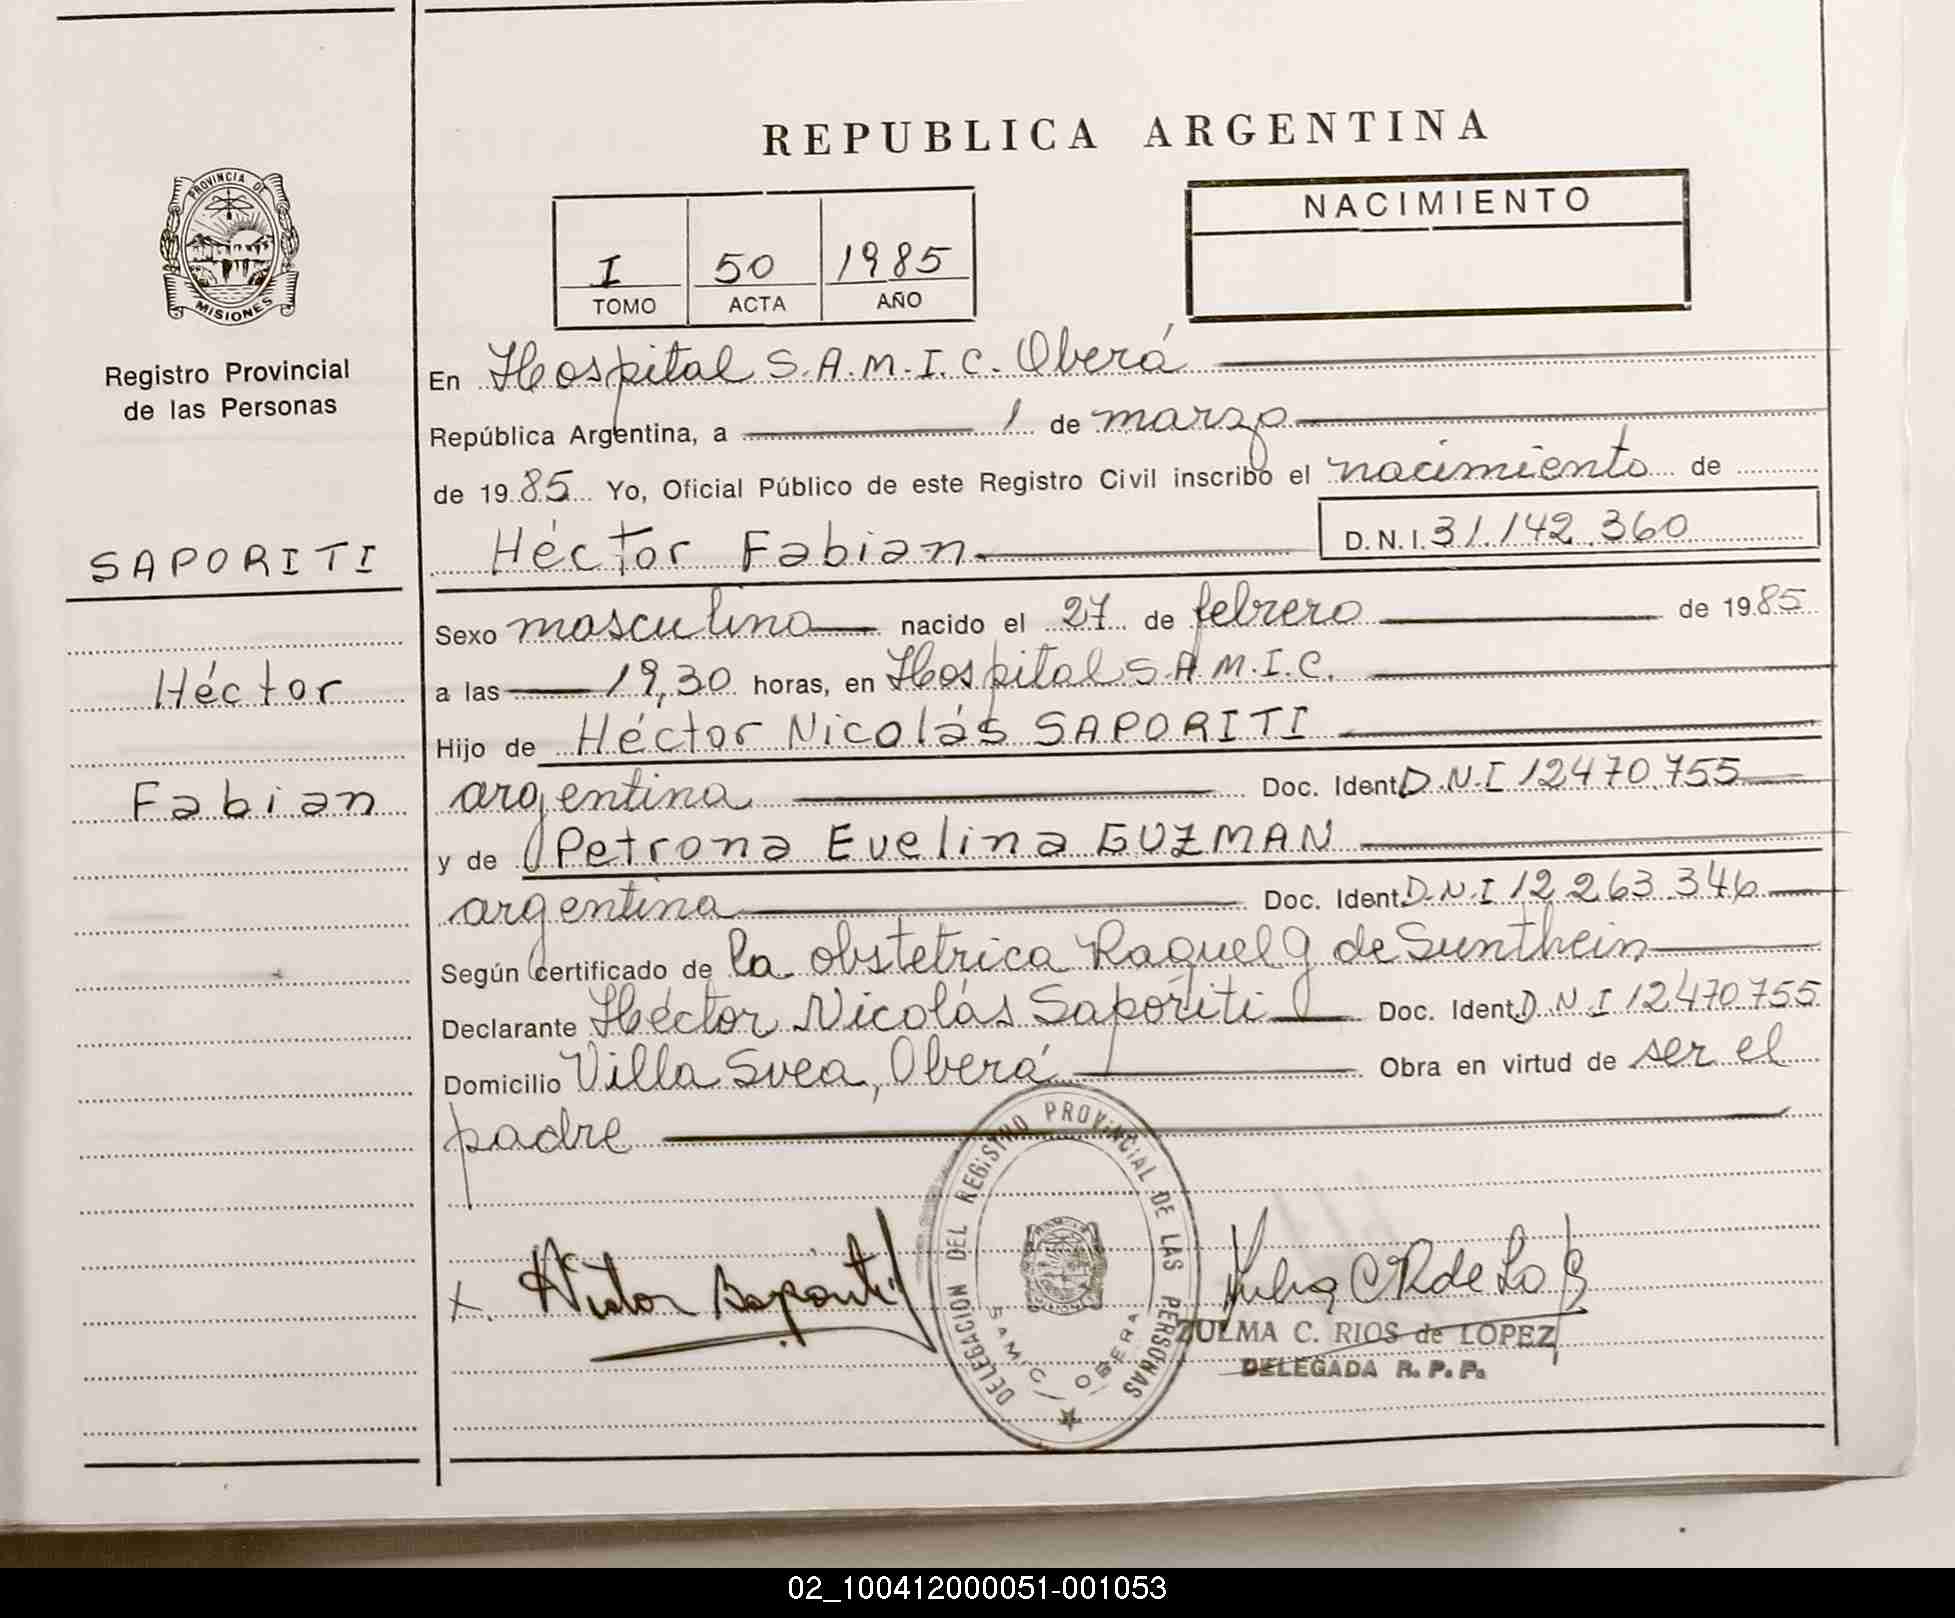 REPUBLICA ARGENTINA
PROVINCIA DE
MISIONES
Registro Provincial
de las Personas
I 50 1985
TOMO ACTA AÑO
NACIMIENTO
En Hospital S.A.M.I.C. Oberá
República Argentina, a 1 de marzo
de 1985 Yo, Oficial Público de este Registro Civil inscribo el nacimiento de
SAPORITI
Héctor Fabian D.N.I. 31.142.360
Sexo masculino nacido el 27 de febrero de 1985
Héctor
a las 19,30 horas, en Hospital S.A.M.I.C.
Hijo de Héctor Nicolás SAPORITI
Fabian
argentina Doc. Ident. D.N.I 12470.755
y de Petrona Evelina GUZMAN
argentina Doc. Ident. D.N.I 12.263.346
Según certificado de la obstetrica Raquel G de Sunthein
Declarante Héctor Nicolás Saporiti Doc. Ident. D.N.I 12.470.755
Domicilio Villa Svea, Oberá Obra en virtud de ser el
padre
DELEGACION DEL REGISTRO PROVINCIAL DE LAS PERSONAS
S.A.M.I.C. OBERA
X.
ZULMA C. RIOS de LOPEZ
DELEGADA R. P. P.
02_100412000051-001053